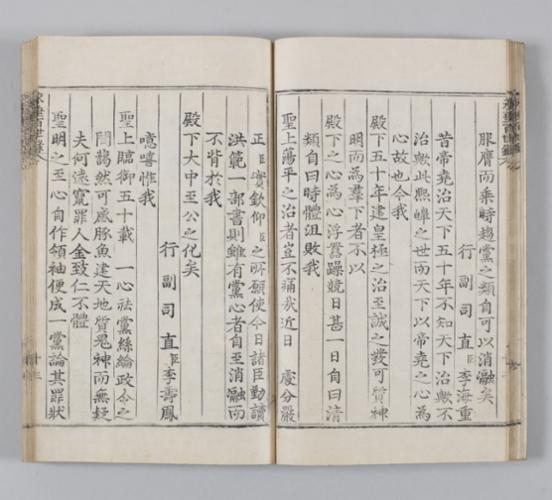 服膺而乘時趨黨之類自可以消瀜矣
行副司直臣李海重
昔帝堯治天下五十年不知天下治歟不
治歟此熙皡之世而天下以帝堯之心爲
心故也今我
殿下五十年建皇極之治至誠之發可質神
明而爲羣下者不以
殿下之心爲心浮囂躁競日甚一日自曰淸
類自曰時體沮敗我
聖上蕩平之治者豈不痛哉近日處分嚴
正臣實欽仰臣之所願使今日諸臣勤讀
洪範一部書則雖有黨心者自至消瀜而
不背於我
殿下大中至公之化矣
行副司直臣李壽鳳
噫嘻惟我
聖上臨御五十載一心祛黨絲綸政令之
間藹然可感豚魚建天地質鬼神而無疑
夫何遠竄罪人金致仁不體
聖明之至心自作領袖便成一黨論其罪狀